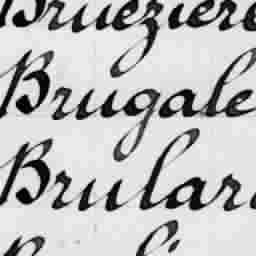 Brueziere
Brugale
Brular